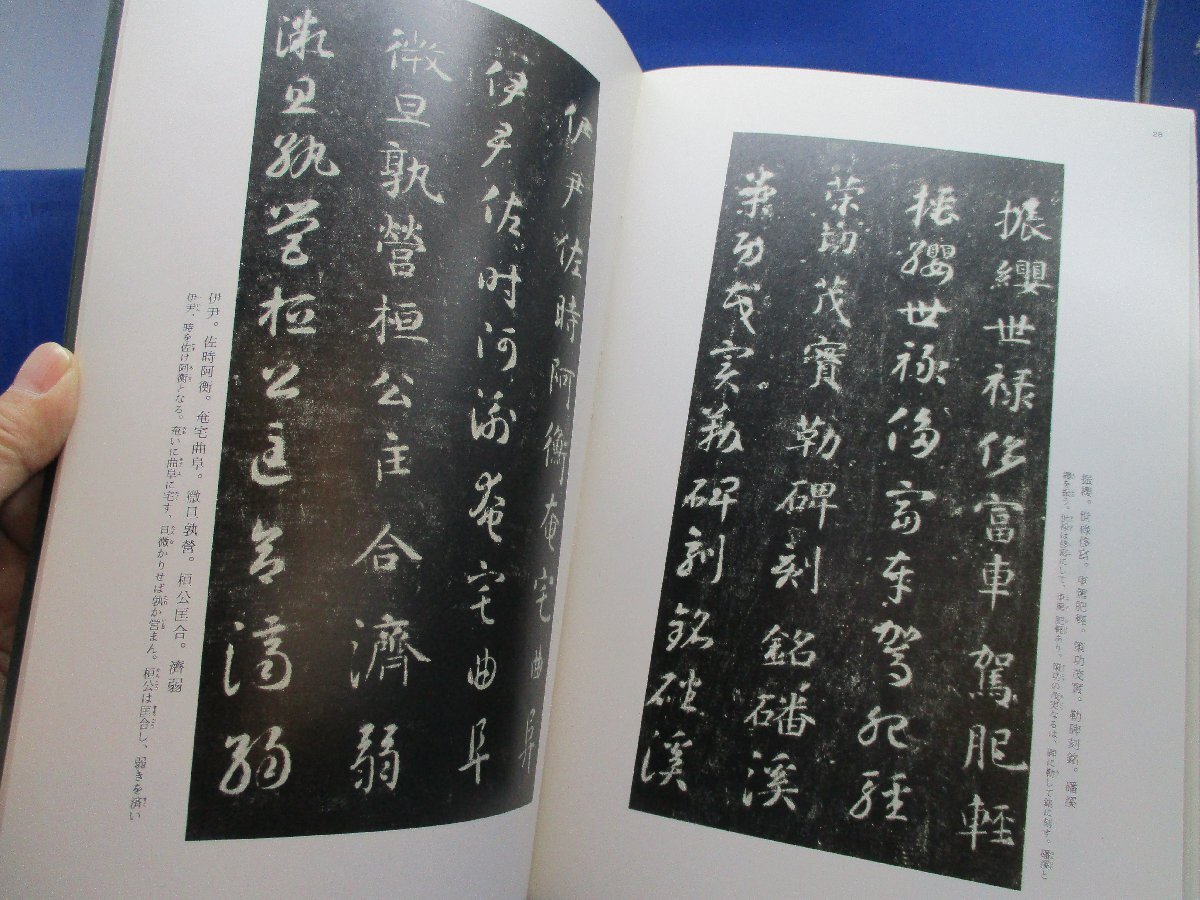 28
振纓。世祿侈富。車駕肥輕。策功茂實。勒碑刻銘。磻溪
纓を振う。世祿は侈富にして、車駕 肥軽あり。策功の茂実なるは、碑に勒して銘に刻す。磻溪と
振纓世祿侈富車駕肥輕
振纓世祿侈富車駕肥輕
策功茂實勒碑刻銘磻溪
策功茂實勒碑刻銘磻溪
伊尹佐時阿衡奄宅曲阜
伊尹佐時阿衡奄宅曲阜
微旦孰營桓公匡合濟弱
微旦孰營桓公匡合濟弱
伊尹。佐時阿衡。奄宅曲阜。微旦孰營。桓公匡合。濟弱
伊尹、時を佐け阿衡となる。奄いに曲阜に宅す、旦微かりせば孰か営まん。桓公は匡合し、弱きを済い